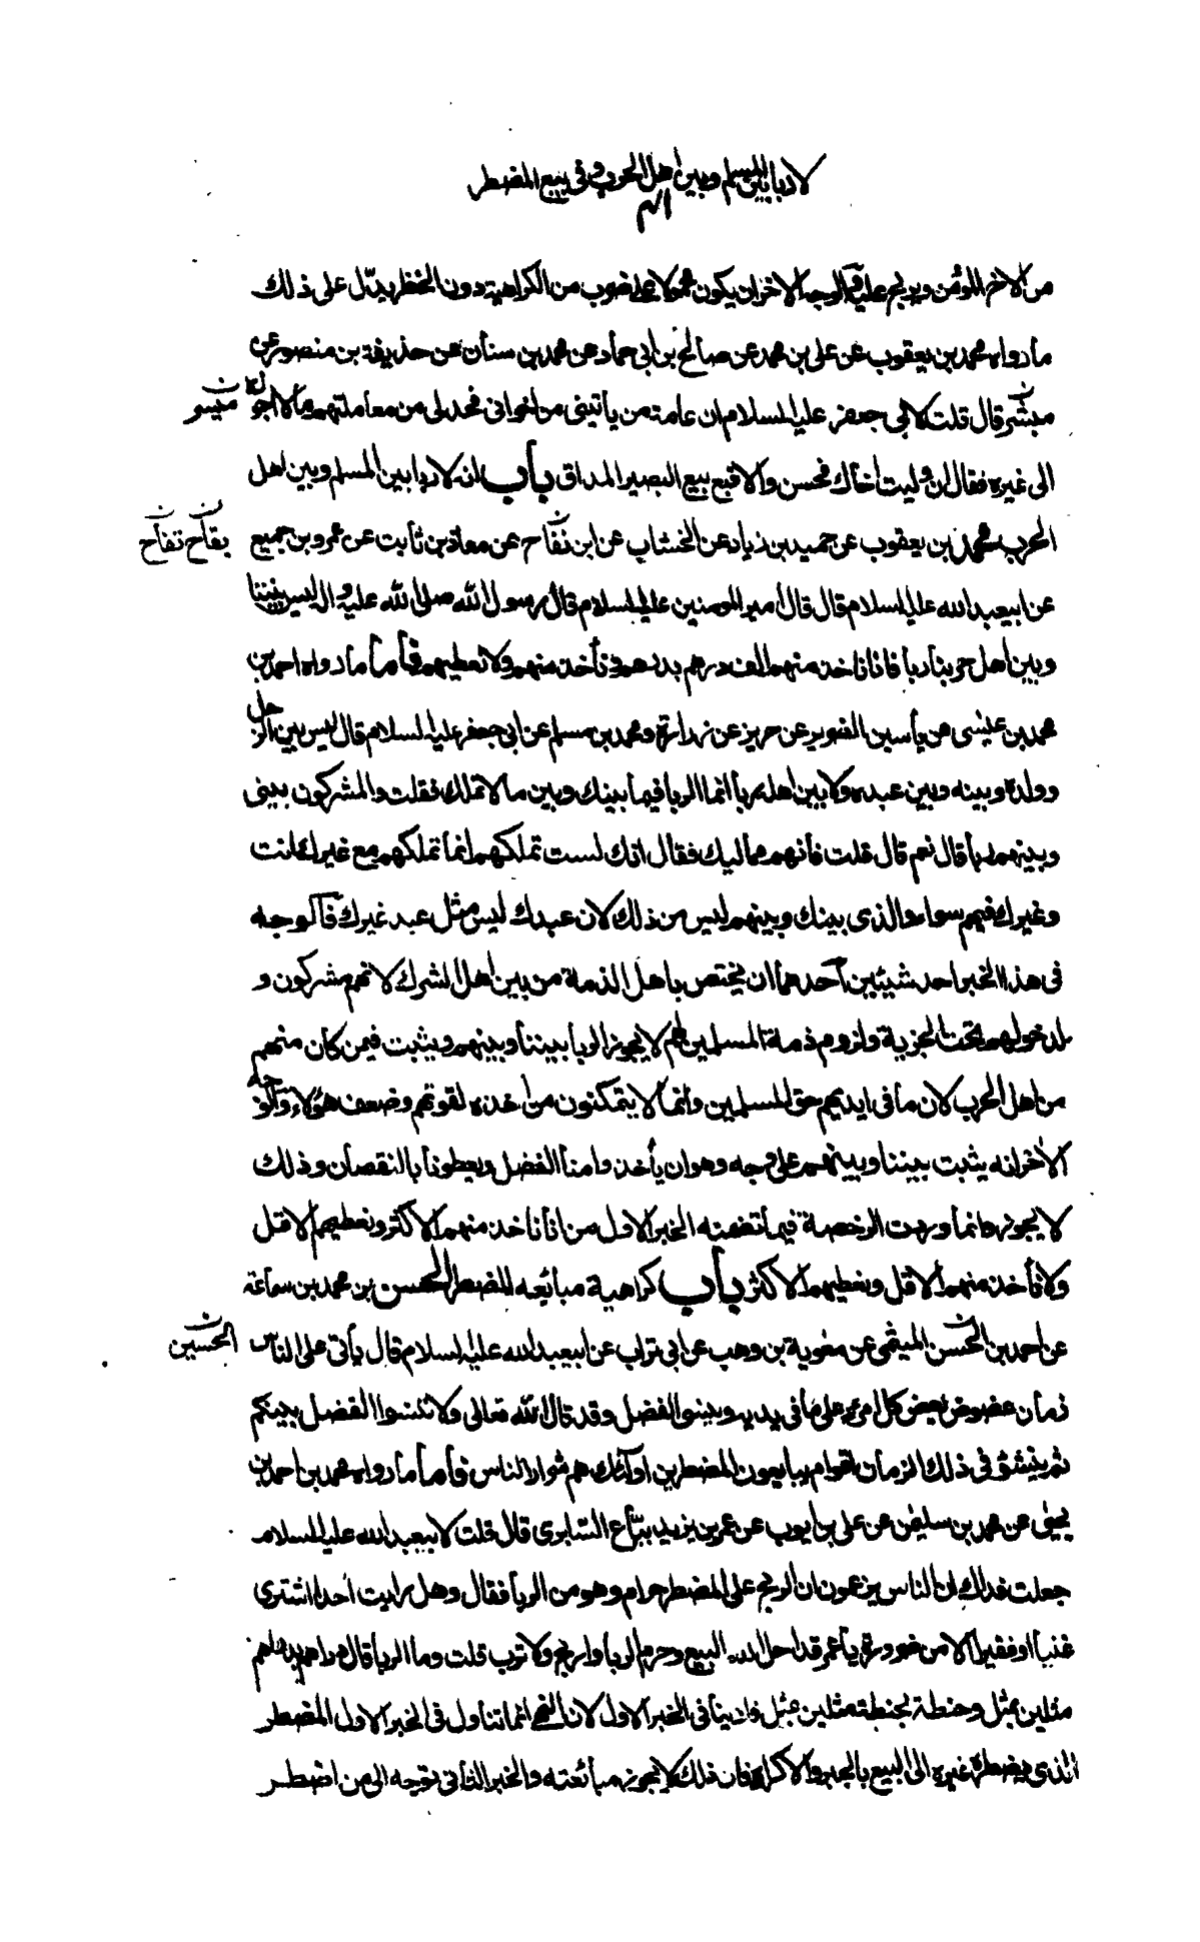 لا ربا بين المسلم وبين اهل الحرب وفى بيع المضطر
من الاخ المؤمن ويربح عليه والوجه الاخر ان يكون محمولا على ضرب من الكراهية دون الحظر يدل على ذلك
ما رواه محمد بن يعقوب عن على بن محمد عن صالح بن ابى حماد عن محمد بن سنان عن حذيفة بن منصور عن
مبشر قال قلت لابى جعفر عليه السلام ان عامة من ياتينى من اخوانى فحد لى من معاملتهم ما لا اجوزه
ميسر
الى غيره فقال ان وليت أخاك فحسن والا فبع بيع البصير المداق باب انه لا ربا بين المسلم وبين اهل
الحرب محمد بن يعقوب عن حميد بن زياد عن الخشاب عن ابن نفاح عن معاذ بن ثابت عن عمرو بن جميع
بقاح تفاح
عن ابيعبد الله عليه السلام قال قال أمير المومنين عليه السلام قال رسول الله صلى الله عليه وآله ليس بيننا
وبين اهل حربنا ربا فانا ناخذ منهم الف درهم بدرهم ونأخذ منهم ولا نعطيهم فأما ما رواه احمد بن
محمد بن عيسى عن يأسين الضرير عن حريز عن زرارة ومحمد بن مسلم عن ابى جعفر عليه السلام قال ليس بين الرجل
وولده وبينه وبين عبده ولا بين اهله ربا انما الربا فيما بينك وبين ما لا تملك فقلت والمشركون بينى
وبينهم ربا قال نعم قال قلت فانهم مماليك فقال انك لست تملكهم انما تملكهم مع غيرك انت
وغيرك فيهم سواء والذى بينك وبينهم ليس من ذلك لان عبدك ليس مثل عبد غيرك فالوجه
فى هذا الخبر احد شيئين أحدهما ان يختص باهل الذمة من بين اهل الشرك لانهم مشركون و
لدخولهم تحت الجزية ولزوم ذمة المسلمين لهم لا يجوز الربا بيننا وبينهم ويثبت فيمن كان منهم
من اهل الحرب لان ما فى ايديهم حق للمسلمين وانما لا يتمكنون من اخذه لقوتهم وضعف هؤلاء والوجه
الاخر انه يثبت بيننا وبينهم على وجه وهو ان يأخذوا منا الفضل ويعطونا بالنقصان وذلك
لا يجوز وانما وردت الرخصة فيما تضمنه الخبر الاول من انا ناخذ منهم الاكثر ونعطيهم الاقل
ولا نأخذ منهم الاقل ونعطيهم الاكثر باب كراهية مبائعه المضطر الحسن بن محمد بن سماعة
عن احمد بن الحسن الميثمى عن معوية بن وهب عن ابى تراب عن ابيعبد الله عليه السلام قال يأتى على الناس
الحسين
زمان عضوض يعض كل امرئ على ما فى يديه وينسوا الفضل وقد قال الله تعالى ولا تنسوا الفضل بينكم
ثم ينشق فى ذلك الزمان اقوام يبايعون المضطرين اولئك هم شرار الناس فأما ما رواه محمد بن احمد بن
يحيى عن محمد بن سليمن عن على بن ايوب عن عمر بن يزيد بياع السابرى قال قلت لابيعبد الله عليه السلام
جعلت فداك ان الناس يزعمون ان الربح على المضطر حرام وهو من الربا فقال وهل رايت أحدا اشترى
غنيا او فقيرا الا من ضرورة يا عمر قد احل الله البيع وحرم الربا واربح ولا ترب قلت وما الربا قال دراهم بدراهم
مثلين بمثل وحنطة بحنطة مثلين بمثل فلا ينافى الخبر الاول لان النهى انما تناول فى الخبر الاول المضطر
الذى يضطره غيره الى البيع بالجبر والاكراه فان ذلك لا يجوز مبائعته والخبر الثانى توجه الى من اضطر